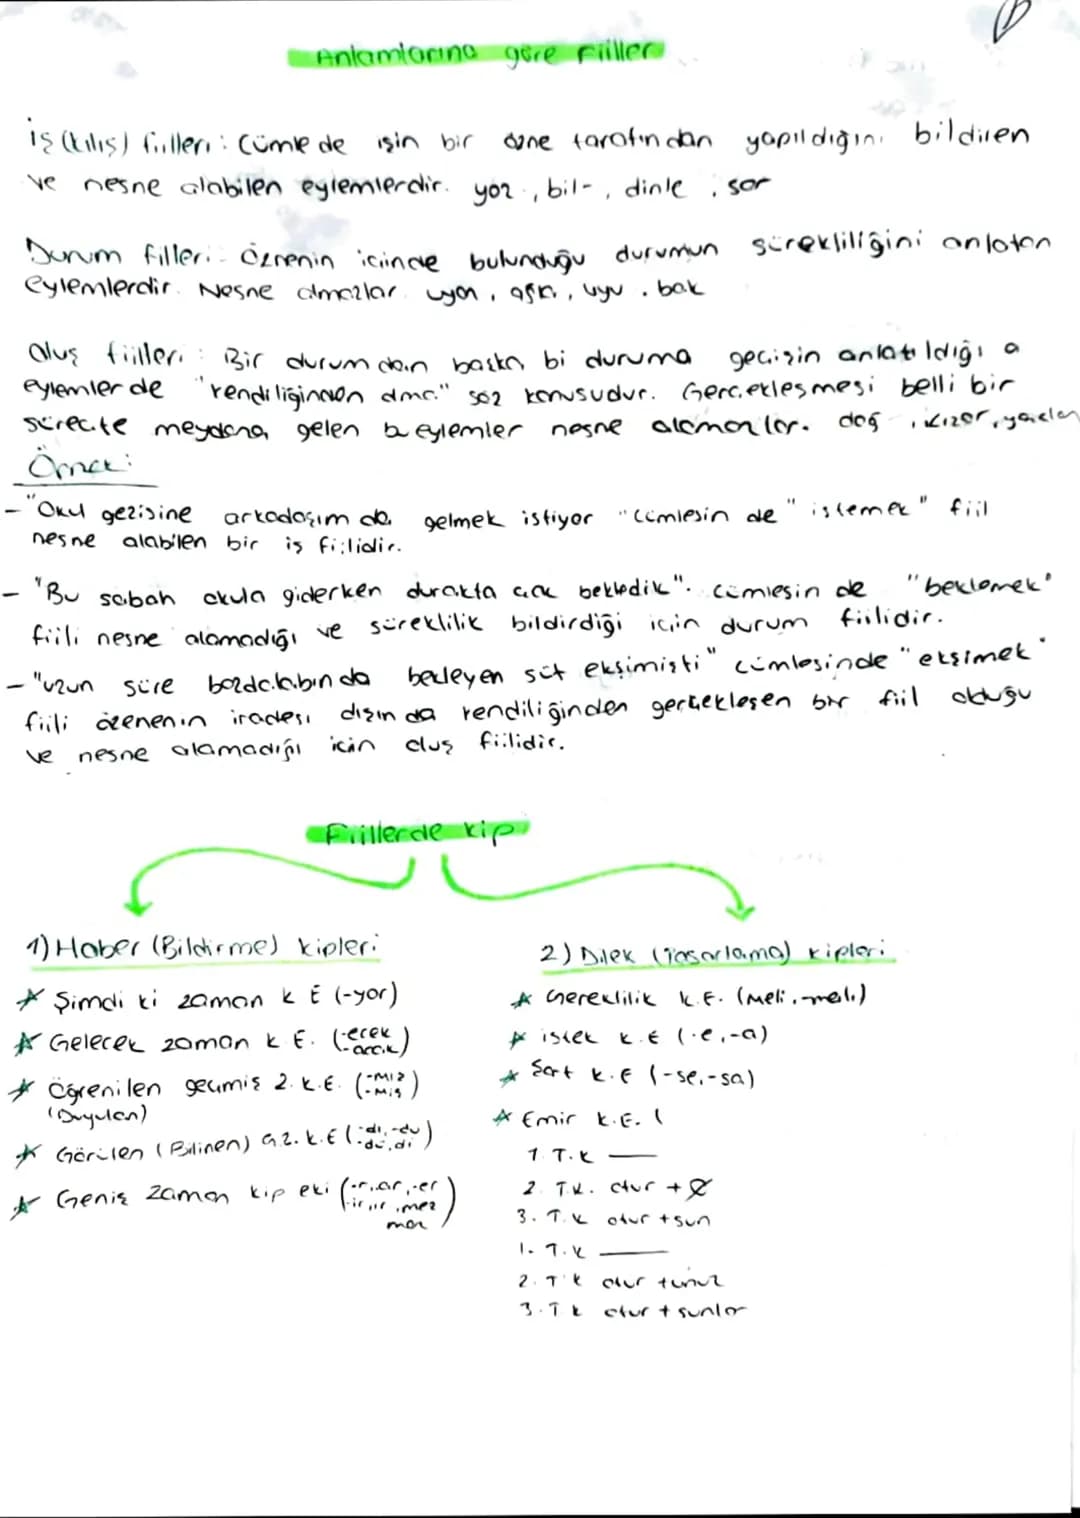 Anlamlarına göre Fiiller
iş (kılış) fiilleri : Cümlede işin bir özne tarafından yapıldığını bildiren
ve nesne alabilen eylemlerdir. yaz-, bil-, dinle, sor
Durum fiilleri: Öznenin içinde bulunduğu durumun sürekliliğini anlatan
eylemlerdir. Nesne almazlar. uyan, uyu, bak
Oluş fiilleri : Bir durumdan başka bi duruma geçişin anlatıldığı
eylemlerde "kendiliğinden olma" söz konusudur. Gerçekleşmesi belli bir
süreçte meydana gelen bu eylemler nesne alamazlar. doğ-, kızar,
Örnek:
- "Okul gezisine arkadaşım da gelmek istiyor" cümlesin de "istemek" fiil
nesne alabilen bir iş fiilidir.
- "Bu sabah okula giderken durakta çok bekledik". cümlesin de "beklemek"
fiili nesne alamadığı ve süreklilik bildirdiği için durum fiilidir.
- "uzun süre bozdolabında bekleyen süt ekşimişti" cümlesinde "ekşimek"
fiili öznenin iradesi dışında kendiliğinden gerçekleşen bir fiil olduğu
ve nesne alamadığı için oluş fiilidir.
Fiillerde kip
1) Haber (Bildirme) kipleri
Şimdi ki zaman k E (-yor)
Gelecek zaman k E. (-ecek
-acak)
Öğrenilen geçmiş z. k.E. (-mız
-miş)
(Duyulan)
Görülen (Bilinen) G.z. k.E (-dı, -du
-dü, di)
Geniş zaman kip eki (-r, ar, -er
-ir, ır, mez
maz)
2) Dilek (Tasarlama) kipleri
Gereklilik k.E. (meli, -malı)
istek k.E (-e, -a)
Şart k.E (-se, -sa)
Emir k.E. (
1. T.k ——
2. T.k. otur + Ø
3. T.k otur + sun
1. T.k ——
2. T.k otur + unuz
3. T k otur + sunlar